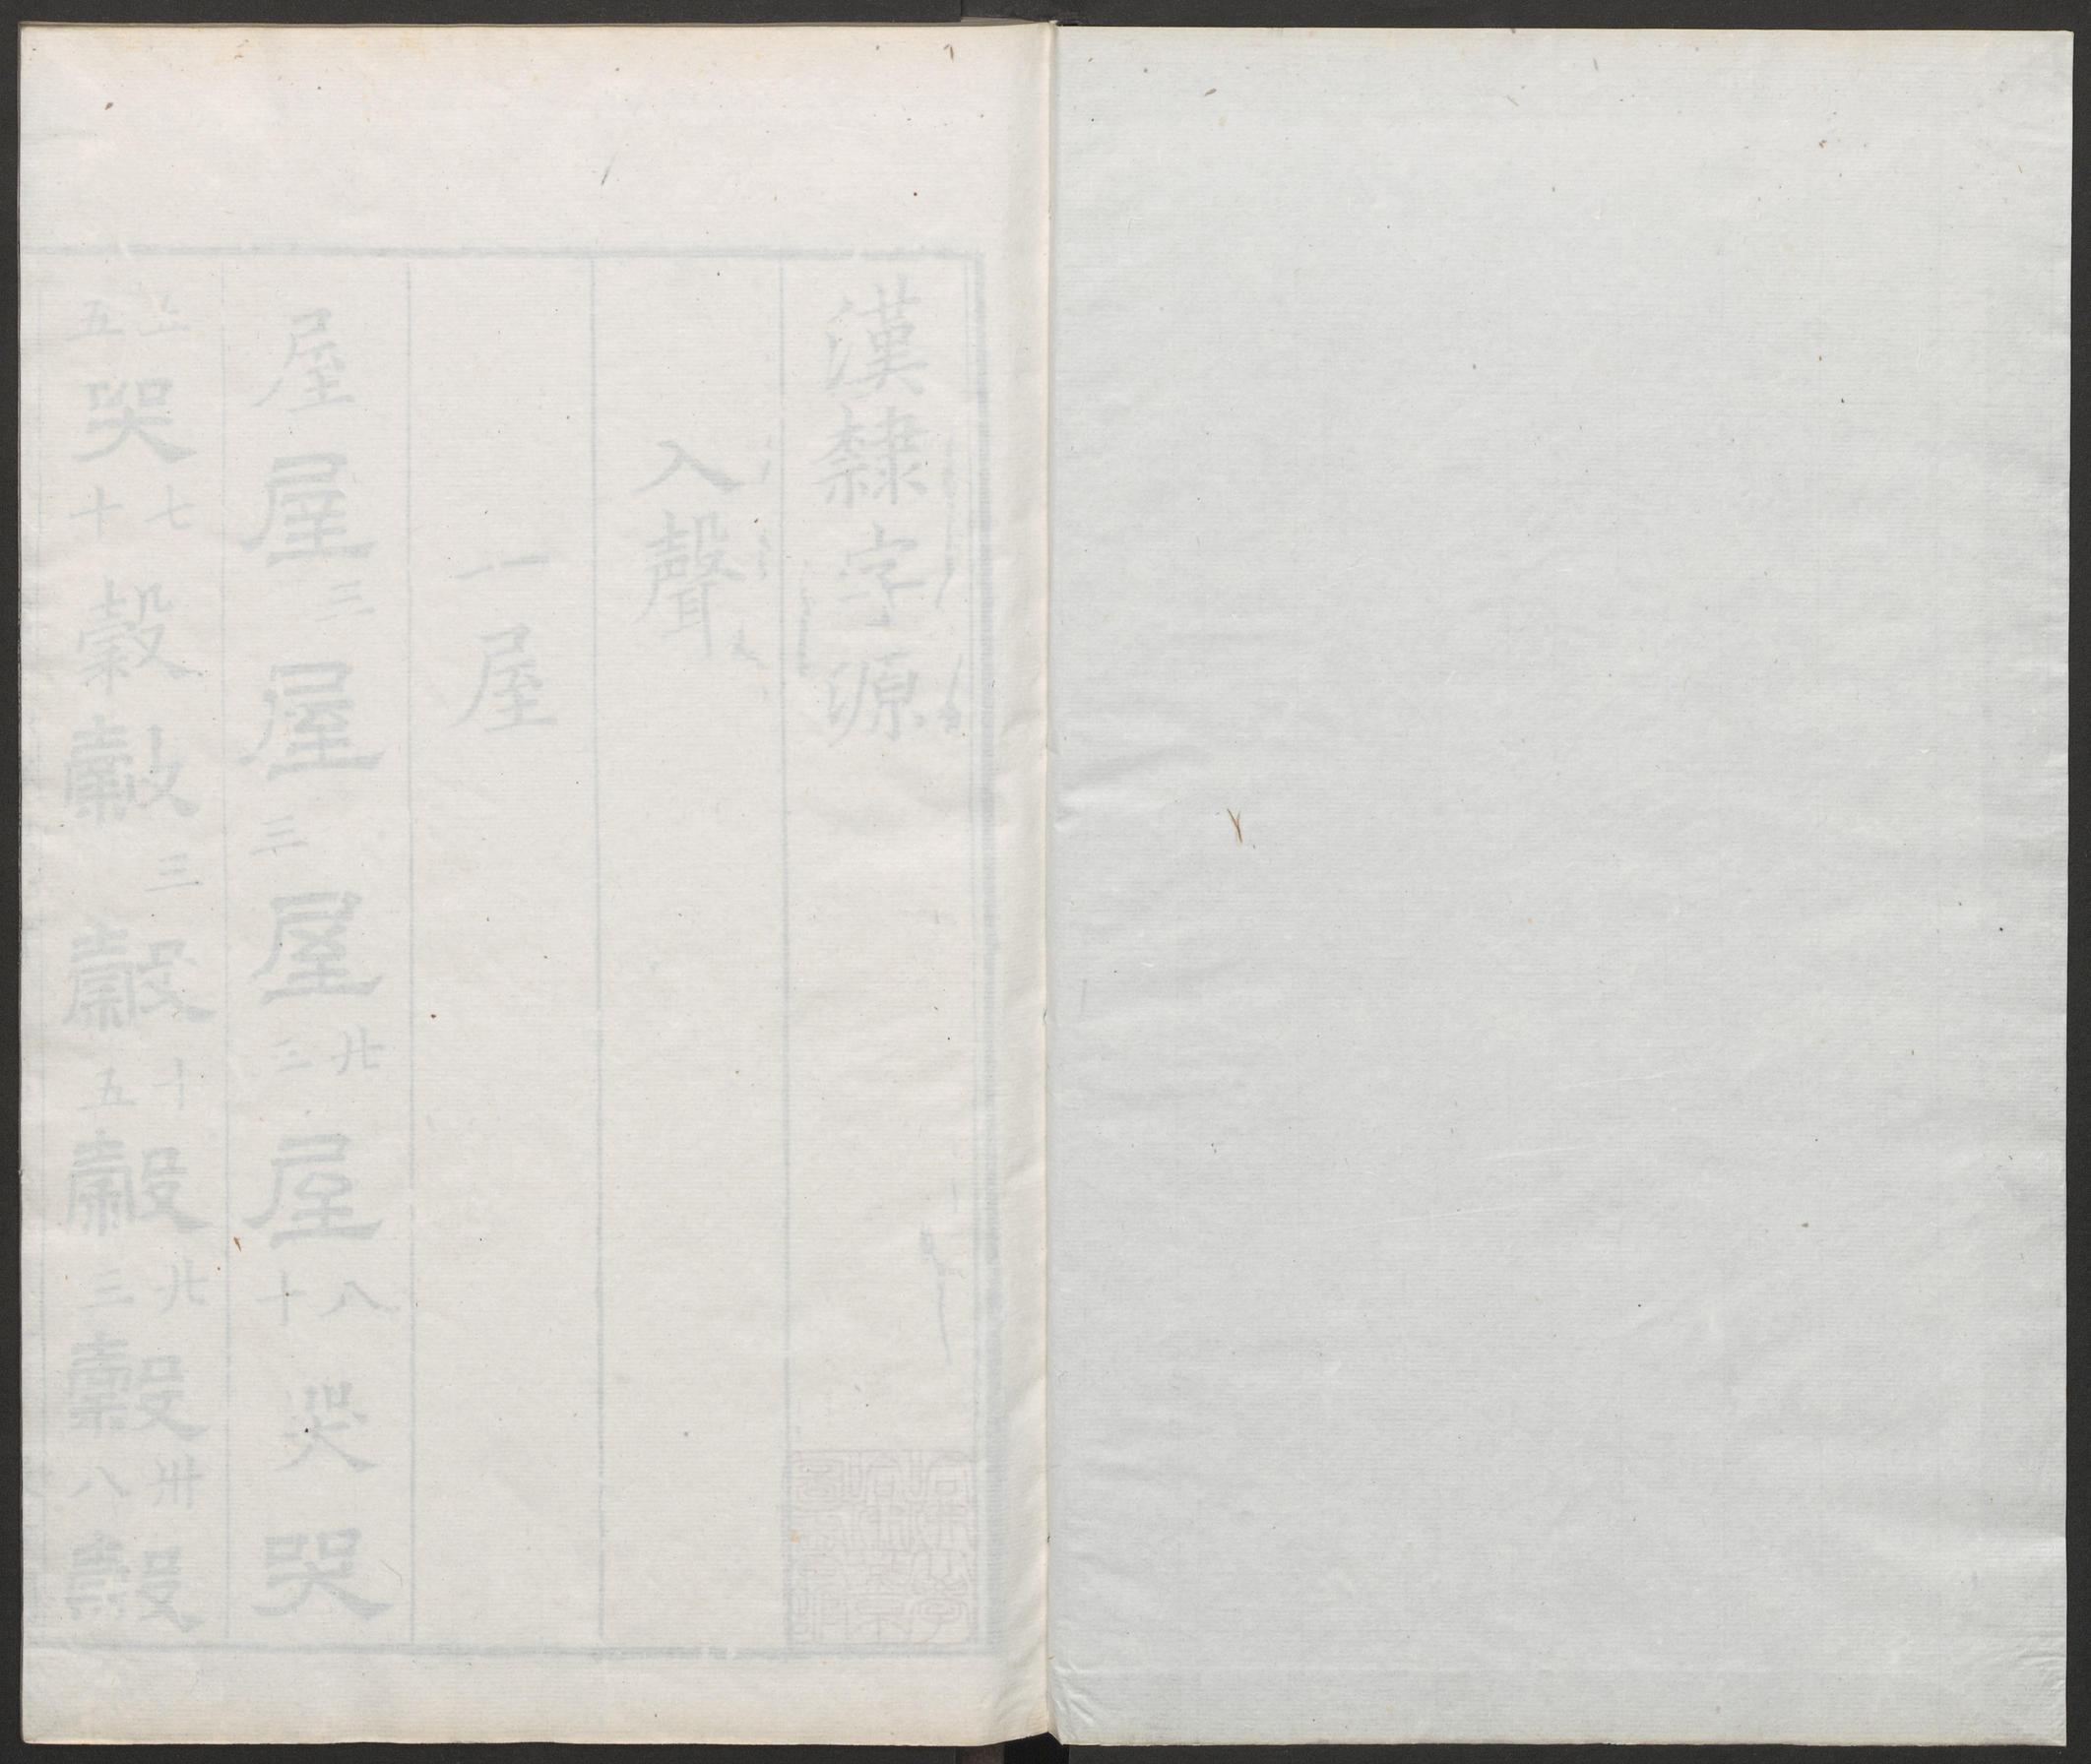 漢隸字源
入聲
一屋
屋屋三屋三屋廿三屋八十哭哭
五哭七十穀穀三穀十五穀廿三穀卅八穀